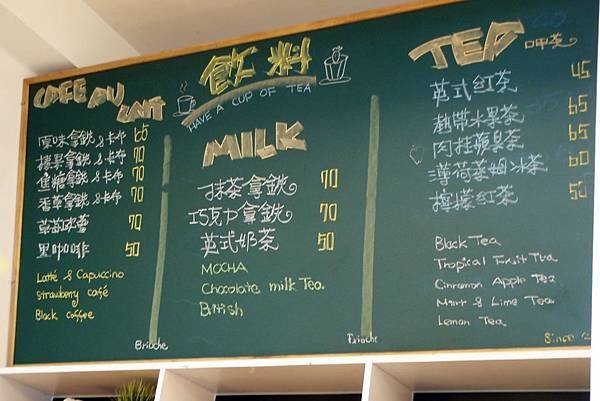 飲料
HAVE A CUP OF TEA
CAFE AU LAIT
原味拿鐵&卡布 65
榛果拿鐵&卡布 70
焦糖拿鐵&卡布 70
香草拿鐵&卡布 70
草莓咖啡 70
黑咖啡 50
Latté & Capuccino
Strawberry café
Black coffee
Brioche
MILK
抹茶拿鐵 70
巧克力拿鐵 70
英式奶茶 50
MOCHA
Chocolate milk Tea.
British
Brioche
TEA 呷茶
英式紅茶 45
熱帶水果茶 65
肉桂蘋果茶 65
薄荷萊姆冰茶 60
檸檬紅茶 50
Black Tea
Tropical Fruit Tea
Cinnamon Apple Tea
Mint & Lime Tea
Lemon Tea
Since